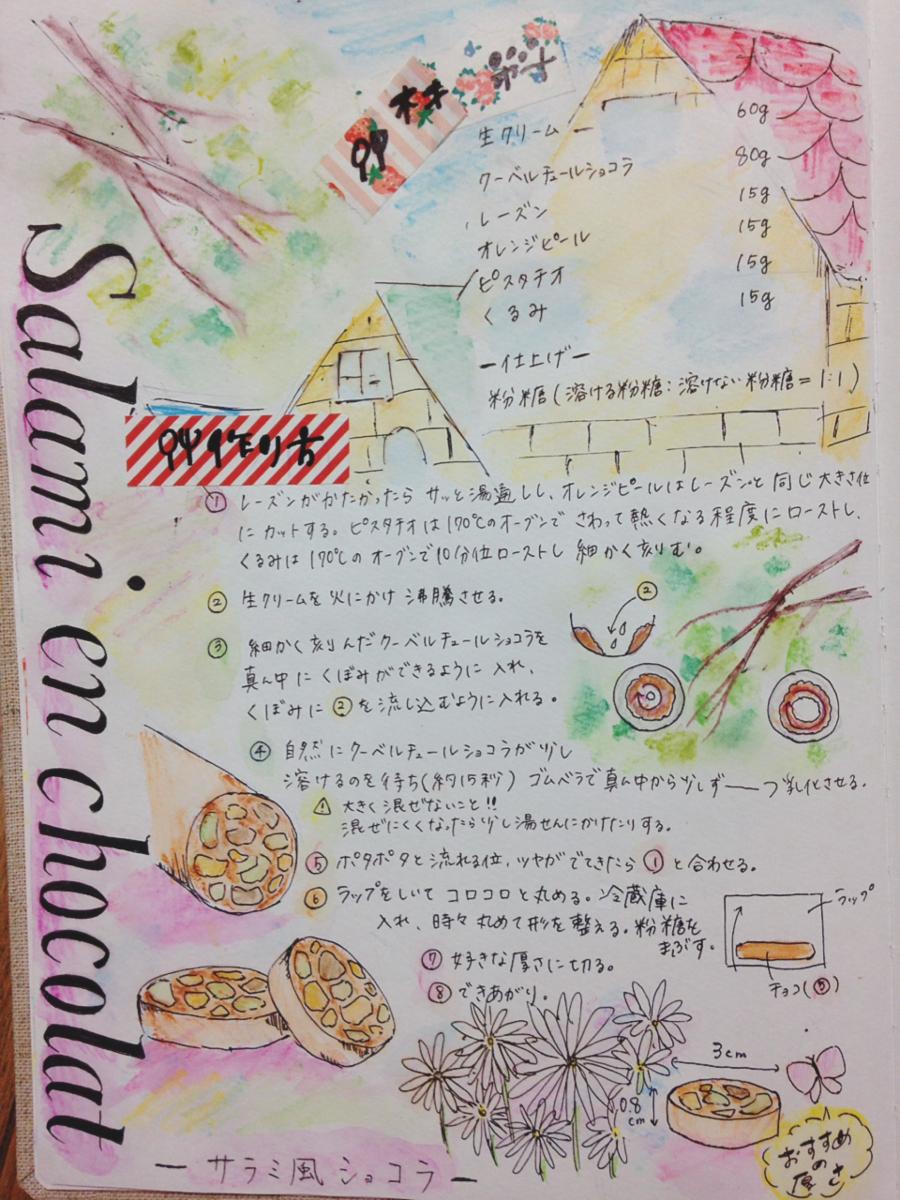 Salami en chocolat
材料
生クリーム ー 60g
クーベルチュールショコラ 80g
レーズン 15g
オレンジピール 15g
ピスタチオ 15g
くるみ 15g
ー仕上げー
粉糖(溶ける粉糖:溶けない粉糖=1:1)
作り方
① レーズンがかたかったら サッと湯通しし、オレンジピールはレーズンと同じ大きさ位
にカットする。ピスタチオは170℃のオーブンで さわって熱くなる程度にローストし、
くるみは170℃のオーブンで10分位ローストし 細かく刻む。
② 生クリームを火にかけ 沸騰させる。
②
③ 細かく刻んだクーベルチュールショコラを
真ん中にくぼみができるように入れ、
くぼみに②を流し込むように入れる。
④ 自然にクーベルチュールショコラが少し
溶けるのを待ち(約15秒) ゴムベラで真ん中から少しずーつ乳化させる。
⚠ 大きく混ぜないこと!!
混ぜにくくなったら少し湯せんにかけたりする。
⑤ ポタポタと流れる位、ツヤがでてきたら①と合わせる。
⑥ ラップをしいて コロコロと丸める。冷蔵庫に
入れ、時々丸めて形を整える。粉糖を
まぶす。
ラップ
チョコ(⑤)
⑦ 好きな厚さに切る。
⑧ できあがり。
3cm
0.8
cm
おすすめ
の
厚さ
ー サラミ風ショコラ ー